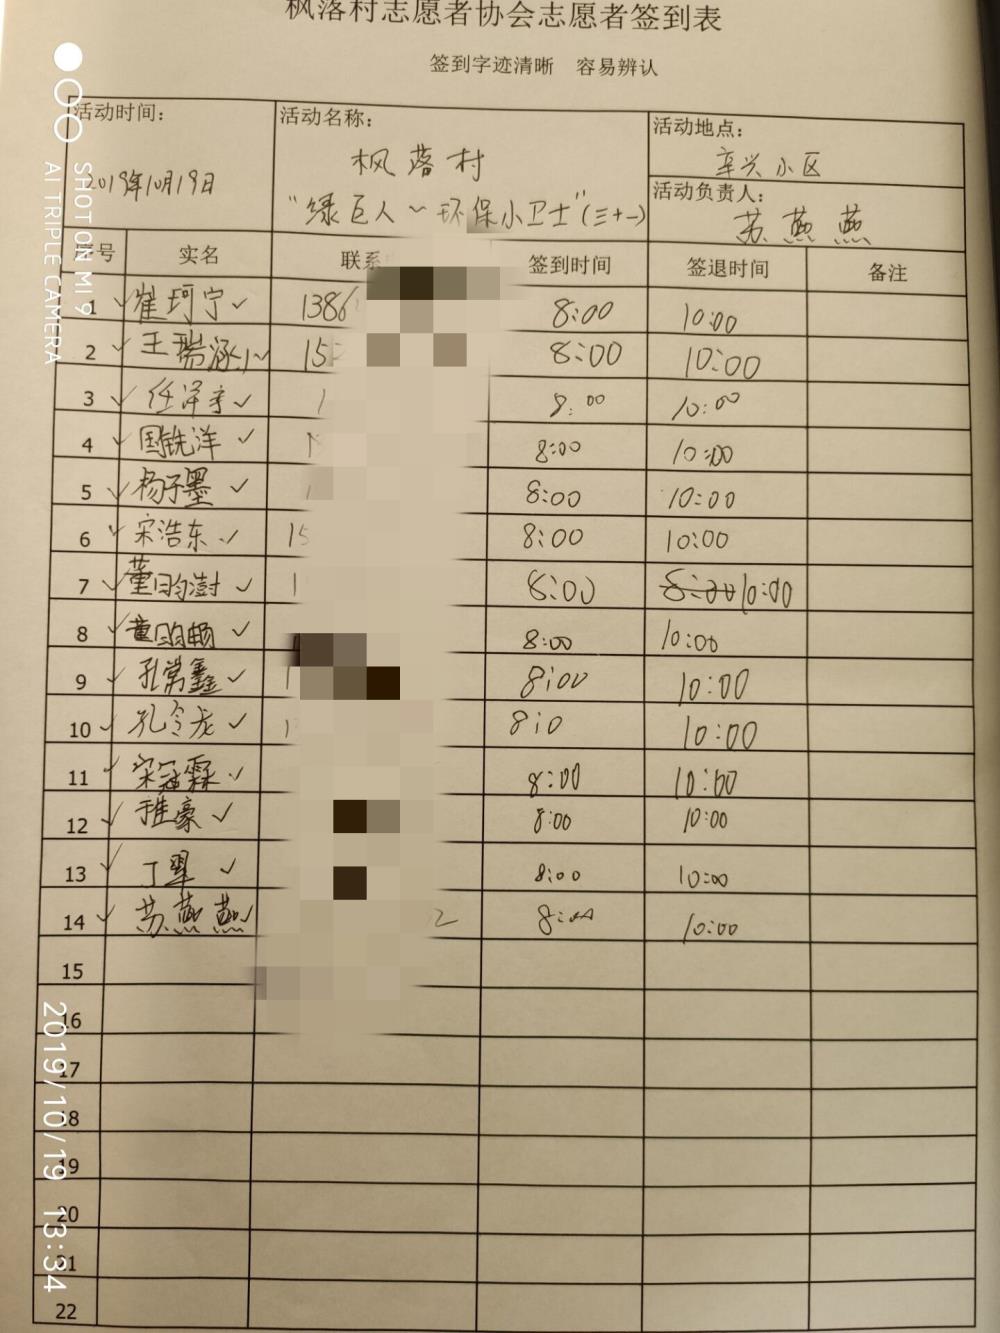 枫落村志愿者协会志愿者签到表
签到字迹清晰 容易辨认
活动时间： 活动名称： 活动地点：
2019年10月19日 枫落村 辛兴小区
"绿巨人～环保小卫士"(三十一) 活动负责人：
苏燕燕
序号 实名 联系 签到时间 签退时间 备注
1 ✓ 崔珂宁 ✓ 1386 8:00 10:00
2 ✓ 王瑞涵 ✓ 15 8:00 10:00
3 ✓ 任泽宇 ✓ 1 8:00 10:00
4 ✓ 国铣洋 ✓ 1 8:00 10:00
5 ✓ 杨子墨 ✓ 1 8:00 10:00
6 ✓ 宋浩东 ✓ 15 8:00 10:00
7 ✓ 董昀澍 ✓ 1 8:00 8:00 10:00
8 ✓ 董昀畅 ✓ 8:00 10:00
9 ✓ 孔常鑫 ✓ 1 8:00 10:00
10 ✓ 孔令龙 ✓ 1 8:0 10:00
11 ✓ 宋冠霖 ✓ 8:00 10:00
12 ✓ 豪 ✓ 8:00 10:00
13 ✓ 丁翠 ✓ 8:00 10:00
14 ✓ 苏燕燕 2 8:00 10:00
15
16
17
18
19
20
21
22
SHOT ON MI 9
AI TRIPLE CAMERA
2019/10/19 13:34